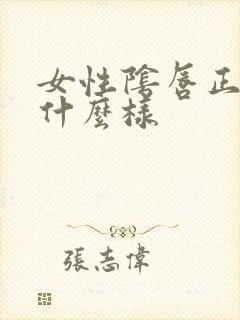 女性陰唇正
什麼樣
張志偉